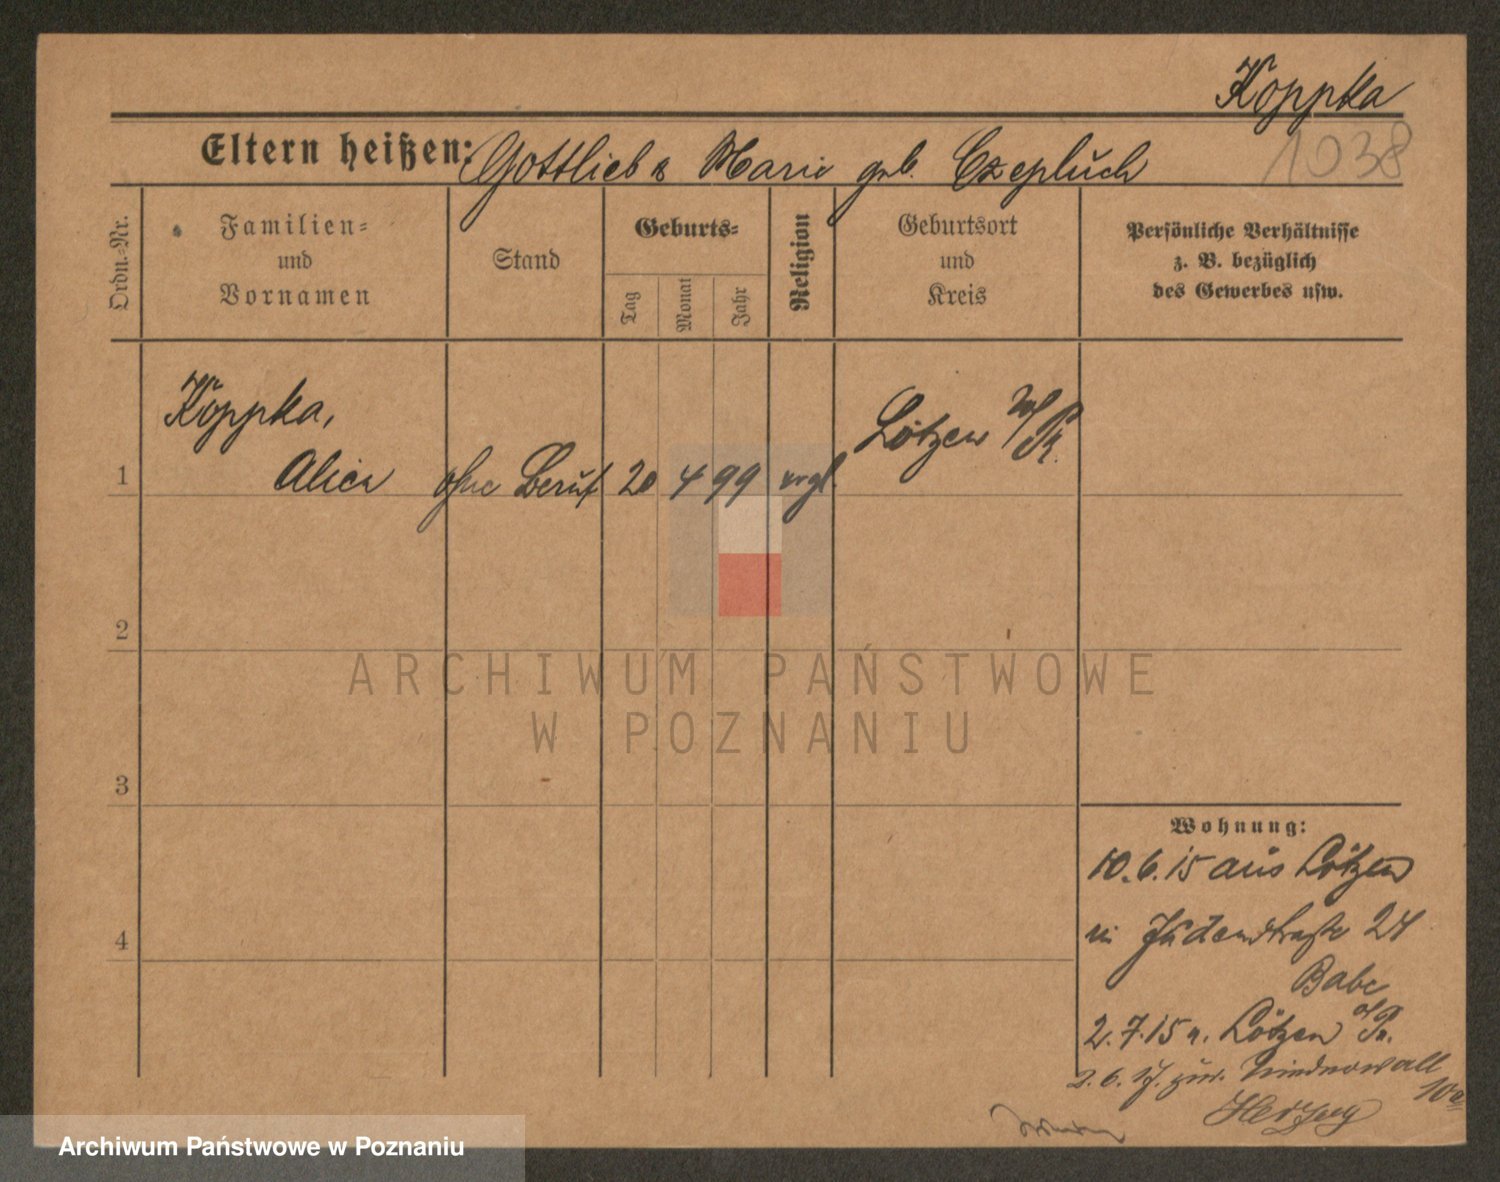 Koppka
1038
Eltern heißen: Gottlieb & Marie geb. Czepluch
Ordn.-Nr.
Familien-
und
Vornamen
Stand
Geburts-
Tag
Monat
Jahr
Religion
Geburtsort
und
Kreis
Persönliche Verhältnisse
z. B. bezüglich
des Gewerbes usw.
Koppka,
Lötzen O/Pr.
1 Alice ohne Beruf 20 4 99 evgl.
2
ARCHIWUM PAŃSTWOWE
W POZNANIU
3
Wohnung:
10.6.15 aus Lötzen
in Judenstraße 24
Babe
4
2.7.15 n. Lötzen O/Pr.
2.6.17. zur.
10a
Herzog
Archiwum Państwowe w Poznaniu